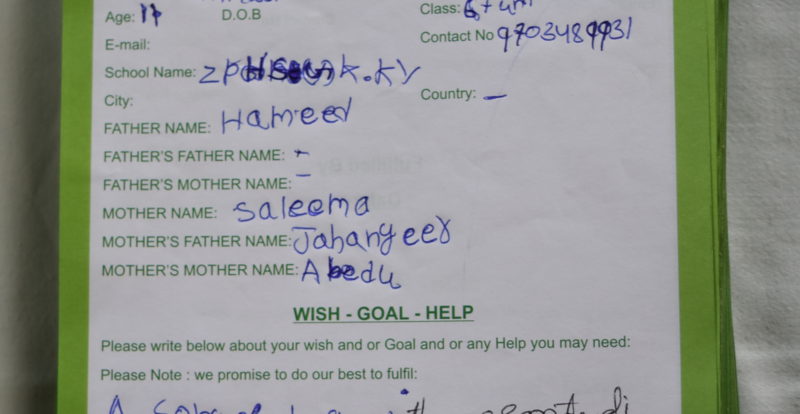 Age: 17 D.O.B Class:
E-mail: Contact No 9703489931
School Name: K.KV
City: Country: -
FATHER NAME: Hameed
FATHER'S FATHER NAME: -
FATHER'S MOTHER NAME: -
MOTHER NAME: Saleema
MOTHER'S FATHER NAME: Jahangeer
MOTHER'S MOTHER NAME: Abedu
WISH - GOAL - HELP
Please write below about your wish and or Goal and or any Help you may need:
Please Note : we promise to do our best to fulfil:
A